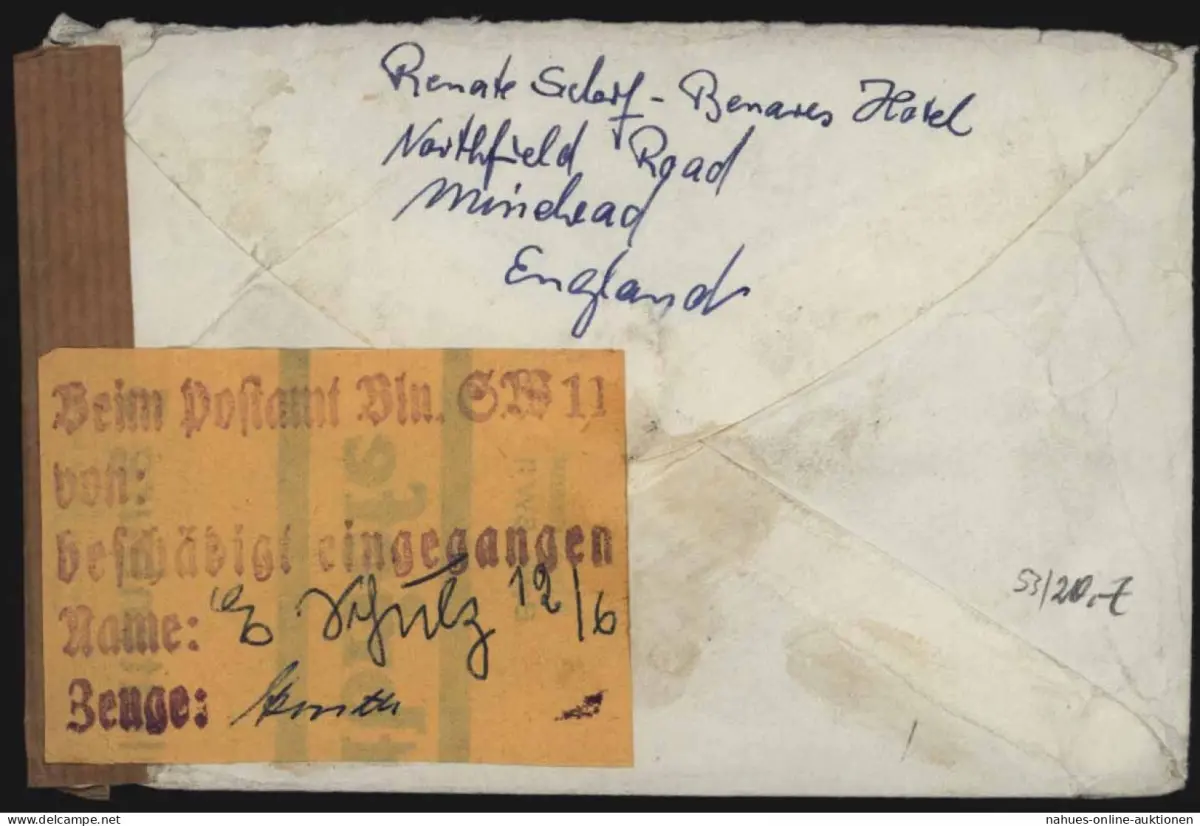 Renate Scharf - Benares Hotel
Northfield Road
Minehead
England
Beim Postamt Bln. SW 11
von:
beschädigt eingegangen
Name: E Schulz 12/6
Zeuge:
53/20,-
nahues-online-auktionen.com
nahues-online-auktionen